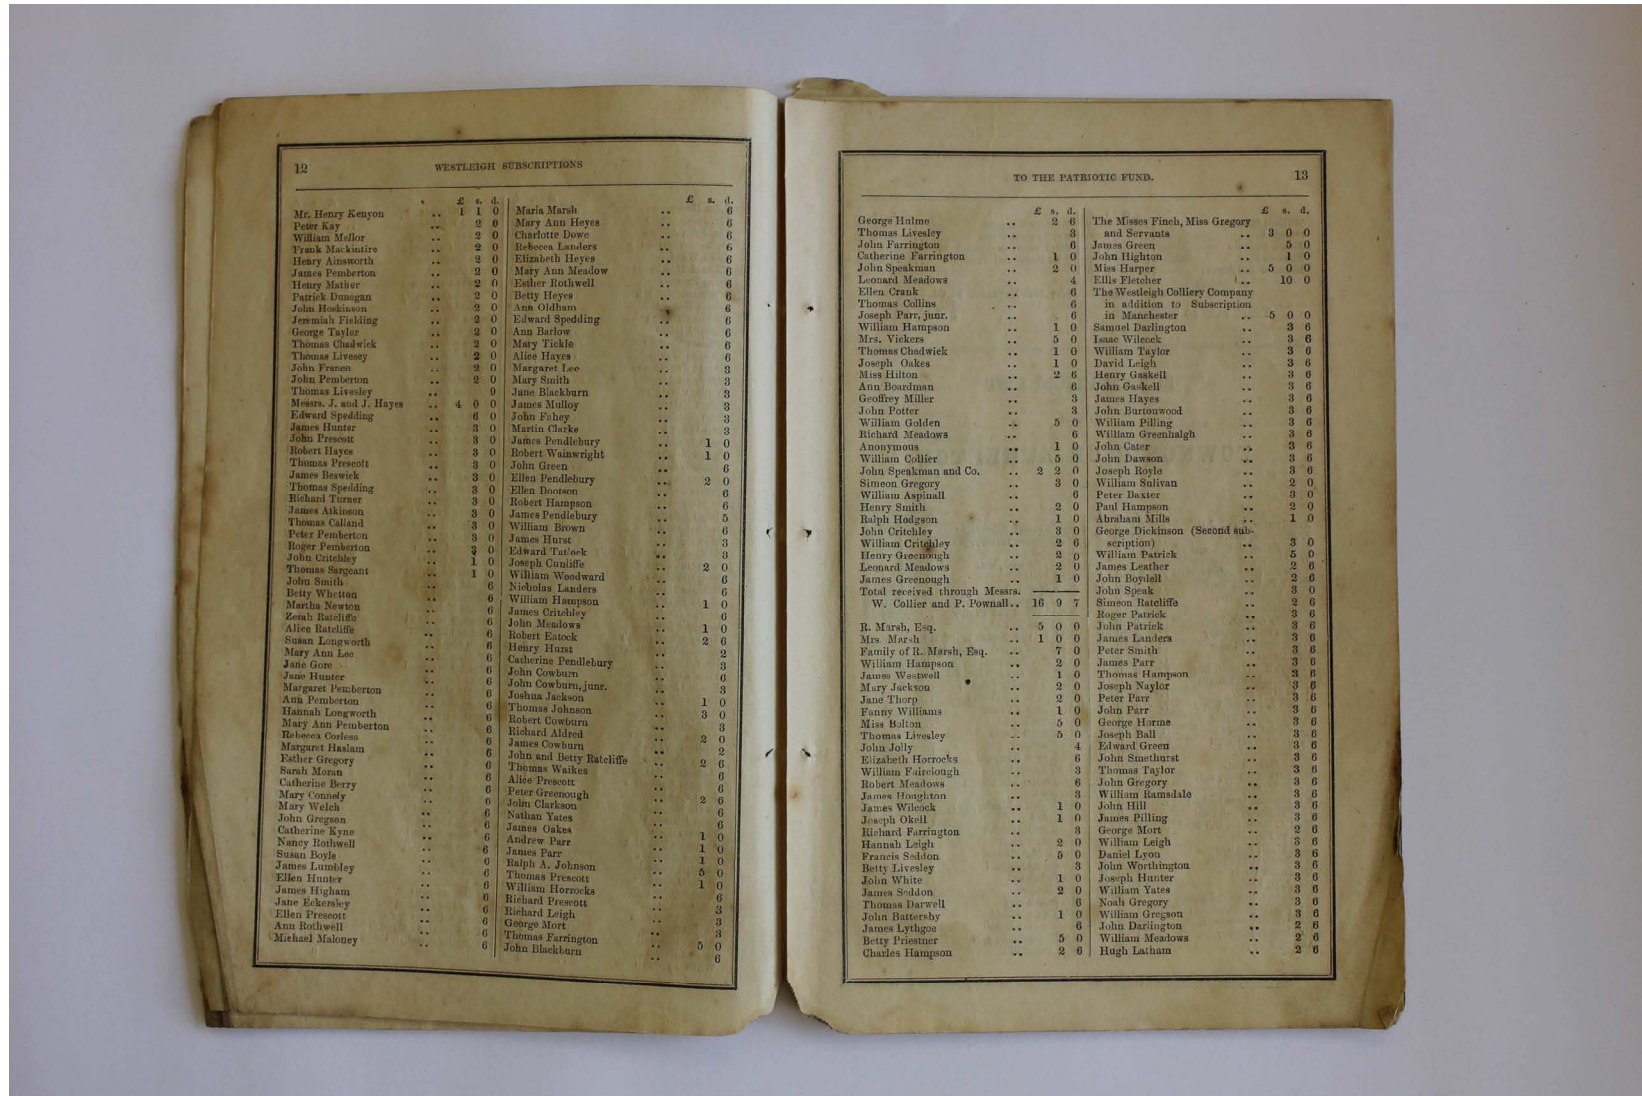 12
WESTLEIGH SUBSCRIPTIONS
£ s. d.
Mr. Henry Kenyon .. 1 1 0
Peter Kay .. 2 0
William Mellor .. 2 0
Frank Mackintire .. 2 0
Henry Ainsworth .. 2 0
James Pemberton .. 2 0
Henry Mather .. 2 0
Patrick Dunegan .. 2 0
John Hoskinson .. 2 0
Jeremiah Fielding .. 2 0
George Taylor .. 2 0
Thomas Chadwick .. 2 0
Thomas Livesey .. 2 0
John France .. 2 0
John Pemberton .. 2 0
Thomas Livesley .. 9
Messrs. J. and J. Hayes .. 4 0 0
Edward Spedding .. 6 0
James Hunter .. 3 0
John Prescott .. 3 0
Robert Hayes .. 3 0
Thomas Prescott .. 3 0
James Beswick .. 3 0
Thomas Spedding .. 3 0
Richard Turner .. 3 0
James Atkinson .. 3 0
Thomas Calland .. 3 0
Peter Pemberton .. 3 0
Roger Pemberton .. 3 0
John Critchley .. 1 0
Thomas Sargeant .. 1 0
John Smith .. 6
Betty Whetton .. 6
Martha Newton .. 6
Zerah Ratcliffe .. 6
Alice Ratcliffe .. 6
Susan Longworth .. 6
Mary Ann Lee .. 6
Jane Gore .. 6
Jane Hunter .. 6
Margaret Pemberton .. 6
Ann Pemberton .. 6
Hannah Longworth .. 6
Mary Ann Pemberton .. 6
Rebecca Corless .. 6
Margaret Haslam .. 6
Esther Gregory .. 6
Sarah Moran .. 6
Catherine Berry .. 6
Mary Connely .. 6
Mary Welch .. 6
John Gregson .. 6
Catherine Kyne .. 6
Nancy Rothwell .. 6
Susan Boyle .. 6
James Lumbley .. 6
Ellen Hunter .. 6
James Higham .. 6
Jane Eckersley .. 6
Ellen Prescott .. 6
Ann Rothwell .. 6
Michael Maloney .. 6
£ s. d.
Maria Marsh .. 6
Mary Ann Heyes .. 6
Charlotte Dowe .. 6
Rebecca Landers .. 6
Elizabeth Heyes .. 6
Mary Ann Meadow .. 6
Esther Rothwell .. 6
Betty Heyes .. 6
Ann Oldham .. 6
Edward Spedding .. 6
Ann Barlow .. 6
Mary Tickle .. 6
Alice Hayes .. 6
Margaret Lee .. 3
Mary Smith .. 3
Jane Blackburn .. 3
James Mulloy .. 3
John Fahey .. 3
Martin Clarke .. 3
James Pendlebury .. 1 0
Robert Wainwright .. 1 0
John Green .. 6
Ellen Pendlebury .. 2 0
Ellen Dootson .. 6
Robert Hampson .. 6
James Pendlebury .. 5
William Brown .. 6
James Hurst .. 3
Edward Tatlock .. 3
Joseph Cunliffe .. 2 0
William Woodward .. 6
Nicholas Landers .. 6
William Hampson .. 1 0
James Critchley .. 6
John Meadows .. 1 0
Robert Eatock .. 2 6
Henry Hurst .. 2
Catherine Pendlebury .. 3
John Cowburn .. 6
John Cowburn, junr. .. 3
Joshua Jackson .. 1 0
Thomas Johnson .. 3 0
Robert Cowburn .. 3
Richard Aldred .. 2 0
James Cowburn .. 2
John and Betty Ratcliffe .. 2 6
Thomas Waikes .. 6
Alice Prescott .. 6
Peter Greenough .. 2 6
John Clarkson .. 6
Nathan Yates .. 6
James Oakes .. 1 0
Andrew Parr .. 1 0
James Parr .. 1 0
Ralph A. Johnson .. 5 0
Thomas Prescott .. 1 0
William Horrocks .. 6
Richard Prescott .. 3
Richard Leigh .. 3
George Mort .. 3
Thomas Farrington .. 5 0
John Blackburn .. 6
TO THE PATRIOTIC FUND.
13
£ s. d.
George Hulme .. 2 6
Thomas Livesley .. 3
John Farrington .. 6
Catherine Farrington .. 1 0
John Speakman .. 2 0
Leonard Meadows .. 4
Ellen Crank .. 6
Thomas Collins .. 6
Joseph Parr, junr. .. 6
William Hampson .. 1 0
Mrs. Vickers .. 5 0
Thomas Chadwick .. 1 0
Joseph Oakes .. 1 0
Miss Hilton .. 2 6
Ann Boardman .. 6
Geoffrey Miller .. 3
John Potter .. 3
William Golden .. 5 0
Richard Meadows .. 6
Anonymous .. 1 0
William Collier .. 5 0
John Speakman and Co. .. 2 2 0
Simeon Gregory .. 3 0
William Aspinall .. 6
Henry Smith .. 2 0
Ralph Hodgson .. 1 0
John Critchley .. 3 0
William Critchley .. 2 6
Henry Greenough .. 2 0
Leonard Meadows .. 2 0
James Greenough .. 1 0
Total received through Messrs.
W. Collier and P. Pownall .. 16 9 7
R. Marsh, Esq. .. 5 0 0
Mrs. Marsh .. 1 0 0
Family of R. Marsh, Esq. .. 7 0
William Hampson .. 2 0
James Westwell .. 1 0
Mary Jackson .. 2 0
Jane Thorp .. 2 0
Fanny Williams .. 1 0
Miss Bolton .. 5 0
Thomas Livesley .. 5 0
John Jolly .. 4
Elizabeth Horrocks .. 6
William Fairclough .. 3
Robert Meadows .. 6
James Houghton .. 3
James Wilcock .. 1 0
Joseph Okell .. 1 0
Richard Farrington .. 3
Hannah Leigh .. 2 0
Francis Seddon .. 5 0
Betty Livesley .. 3
John White .. 1 0
James Seddon .. 2 0
Thomas Darwell .. 6
John Battersby .. 1 0
James Lythgoe .. 6
Betty Priestner .. 5 0
Charles Hampson .. 2 6
£ s. d.
The Misses Finch, Miss Gregory
and Servants .. 3 0 0
James Green .. 5 0
John Highton .. 1 0
Miss Harper .. 5 0 0
Ellis Fletcher .. 10 0
The Westleigh Colliery Company
in addition to Subscription
in Manchester .. 5 0 0
Samuel Darlington .. 3 6
Isaac Wilcock .. 3 6
William Taylor .. 3 6
David Leigh .. 3 6
Henry Gaskell .. 3 6
John Gaskell .. 3 6
James Hayes .. 3 6
John Burtonwood .. 3 6
William Pilling .. 3 6
William Greenhalgh .. 3 6
John Cater .. 3 6
John Dawson .. 3 6
Joseph Royle .. 3 6
William Sulivan .. 2 0
Peter Baxter .. 3 0
Paul Hampson .. 2 0
Abraham Mills .. 1 0
George Dickinson (Second sub-
scription) .. 3 0
William Patrick .. 5 0
James Leather .. 2 6
John Boydell .. 2 6
John Speak .. 3 0
Simeon Ratcliffe .. 2 6
Roger Patrick .. 3 6
John Patrick .. 3 6
James Landers .. 3 6
Peter Smith .. 3 6
James Parr .. 3 6
Thomas Hampson .. 3 6
Joseph Naylor .. 3 6
Peter Parr .. 3 6
John Parr .. 3 6
George Horme .. 3 6
Joseph Ball .. 3 6
Edward Green .. 3 6
John Smethurst .. 3 6
Thomas Taylor .. 3 6
John Gregory .. 3 6
William Ramsdale .. 3 6
John Hill .. 3 6
James Pilling .. 3 6
George Mort .. 2 6
William Leigh .. 3 6
Daniel Lyon .. 3 6
John Worthington .. 3 6
Joseph Hunter .. 3 6
William Yates .. 3 6
Noah Gregory .. 3 6
William Gregson .. 3 6
John Darlington .. 2 6
William Meadows .. 2 6
Hugh Latham .. 2 6